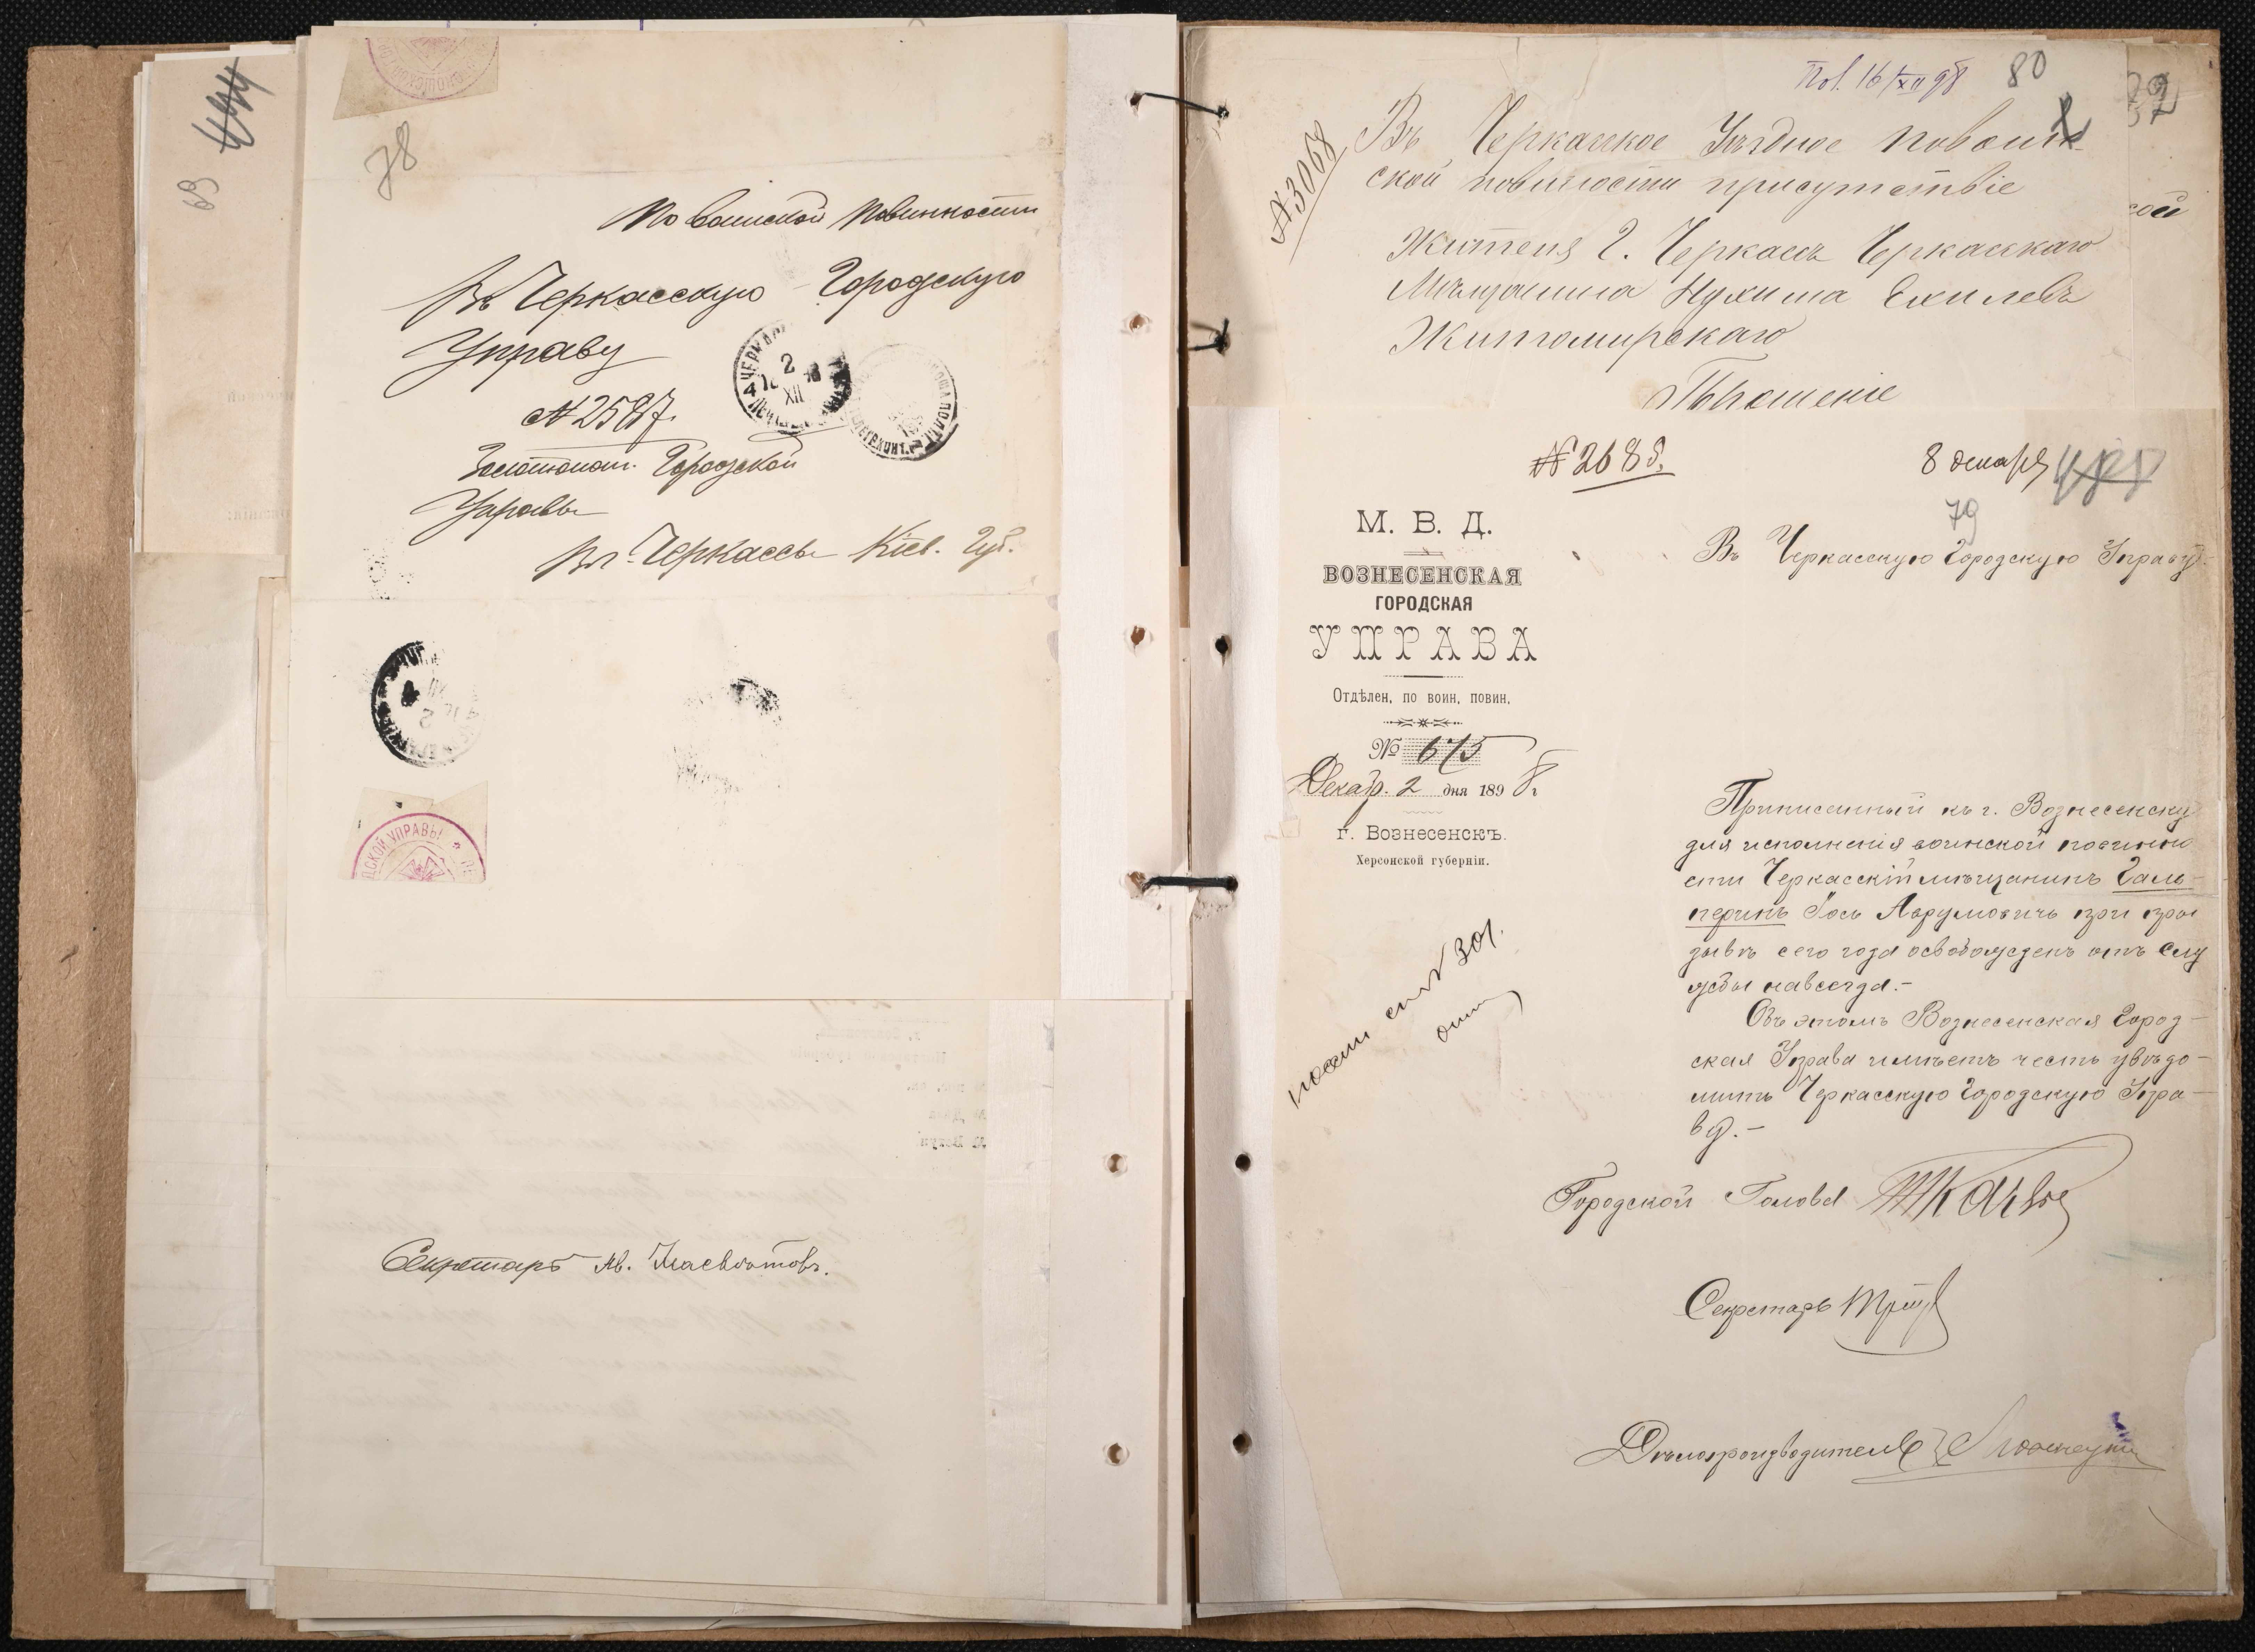 78
По воинской повинности
Въ Черкасскую Городскую
Управу
№ 2587.
Золотонош. Городской
Управы
Въ г. Черкассы Кіев. Губ.
2
XII
ДСКОЙ УПРАВЫ
Секретарь Ив.
69
Пол. 16/XII 98
80
№ 3068
Въ Черкасское Уѣздное по воин-
ской повинности присутствіе
Жителя г. Черкассъ Черкасскаго
Мѣщанина Нухима Ехилева
Житомирскаго
Прошеніе
№ 2688.
8 декабря
79
М. В. Д.
ВОЗНЕСЕНСКАЯ
ГОРОДСКАЯ
УПРАВА
Отдѣлен, по воин, повин,
№ 675
Декабр. 2 дня 1898 г
г. Вознесенскъ.
Херсонской губерніи.
Въ Черкасскую Городскую Управу.
Приписанный къ г. Вознесенску
для исполненія воинской повинно
сти Черкасскій мѣщанинъ Галь-
перинъ Іось Аврумовичъ при при
зывѣ сего года освобожденъ отъ слу
жбы навсегда.-
Объ этомъ Вознесенская Город-
ская Управа имѣетъ честь увѣдо-
мить Черкасскую Городскую Упра-
ву.-
Городской Голова
Секретарь
Дѣлопроизводитель